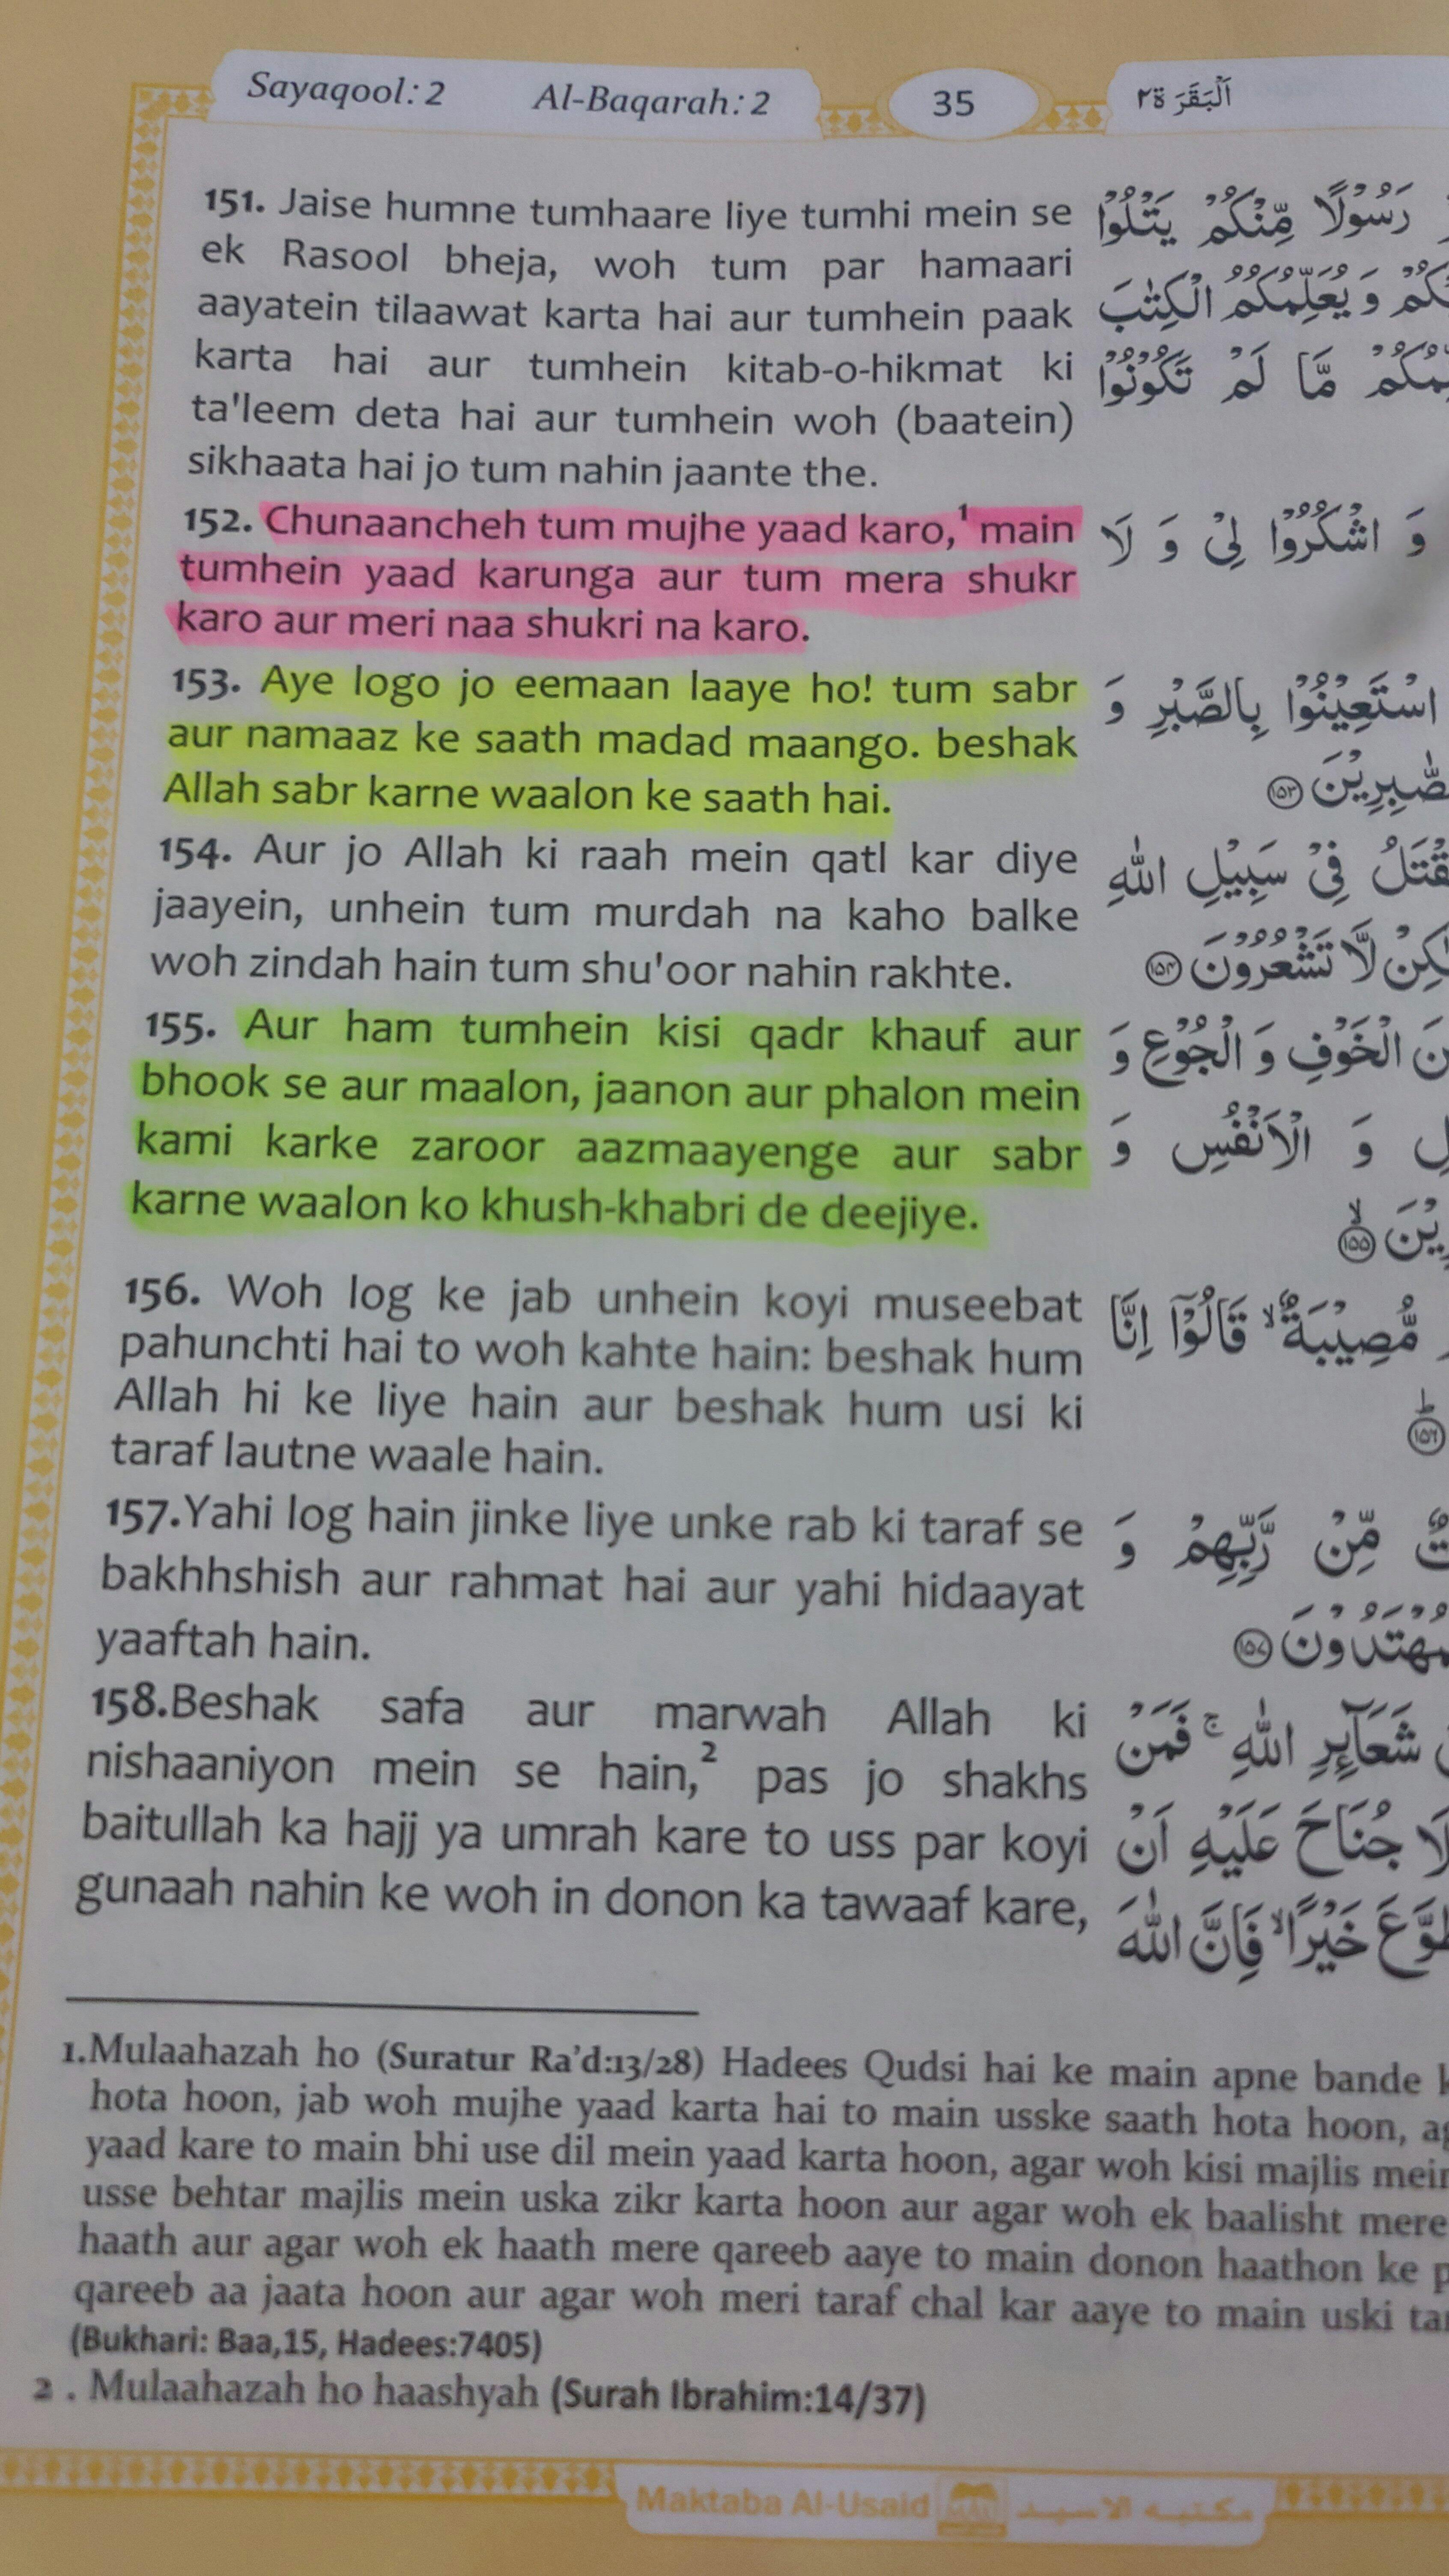 Sayaqool: 2 Al-Baqarah: 2 35 اَلْبَقَرَة٢
151. Jaise humne tumhaare liye tumhi mein se
ek Rasool bheja, woh tum par hamaari
aayatein tilaawat karta hai aur tumhein paak
karta hai aur tumhein kitab-o-hikmat ki
ta'leem deta hai aur tumhein woh (baatein)
sikhaata hai jo tum nahin jaante the.
152. Chunaancheh tum mujhe yaad karo,¹ main
tumhein yaad karunga aur tum mera shukr
karo aur meri naa shukri na karo.
153. Aye logo jo eemaan laaye ho! tum sabr
aur namaaz ke saath madad maango. beshak
Allah sabr karne waalon ke saath hai.
154. Aur jo Allah ki raah mein qatl kar diye
jaayein, unhein tum murdah na kaho balke
woh zindah hain tum shu'oor nahin rakhte.
155. Aur ham tumhein kisi qadr khauf aur
bhook se aur maalon, jaanon aur phalon mein
kami karke zaroor aazmaayenge aur sabr
karne waalon ko khush-khabri de deejiye.
156. Woh log ke jab unhein koyi museebat
pahunchti hai to woh kahte hain: beshak hum
Allah hi ke liye hain aur beshak hum usi ki
taraf lautne waale hain.
157.Yahi log hain jinke liye unke rab ki taraf se
bakhhshish aur rahmat hai aur yahi hidaayat
yaaftah hain.
158.Beshak safa aur marwah Allah ki
nishaaniyon mein se hain,² pas jo shakhs
baitullah ka hajj ya umrah kare to uss par koyi
gunaah nahin ke woh in donon ka tawaaf kare,
رَسُوْلًا مِّنْكُمْ يَتْلُوْا
وَ يُعَلِّمُكُمُ الْكِتٰبَ
مَّا لَمْ تَكُوْنُوْا
وَ اشْكُرُوْا لِیْ وَ لَا
اسْتَعِيْنُوْا بِالصَّبْرِ وَ
۱۵۳
فِیْ سَبِيْلِ اللّٰهِ
لَّا تَشْعُرُوْنَ ۱۵۴
الْخَوْفِ وَ الْجُوْعِ وَ
وَ الْاَنْفُسِ وَ
۱۵۵
مُّصِيْبَةٌ ۙ قَالُوْۤا اِنَّا
۱۵۶
مِّنْ رَّبِّهِمْ وَ
۱۵۷
شَعَآىِٕرِ اللّٰهِ ۚ فَمَنْ
جُنَاحَ عَلَيْهِ اَنْ
خَيْرًا ۙ فَاِنَّ اللّٰهَ
1.Mulaahazah ho (Suratur Ra'd:13/28) Hadees Qudsi hai ke main apne bande
hota hoon, jab woh mujhe yaad karta hai to main usske saath hota hoon,
yaad kare to main bhi use dil mein yaad karta hoon, agar woh kisi majlis mein
usse behtar majlis mein uska zikr karta hoon aur agar woh ek baalisht mere
haath aur agar woh ek haath mere qareeb aaye to main donon haathon ke
qareeb aa jaata hoon aur agar woh meri taraf chal kar aaye to main uski
(Bukhari: Baa,15, Hadees:7405)
2 . Mulaahazah ho haashyah (Surah Ibrahim:14/37)
Maktaba Al-Usaid مكتبه الاسيد